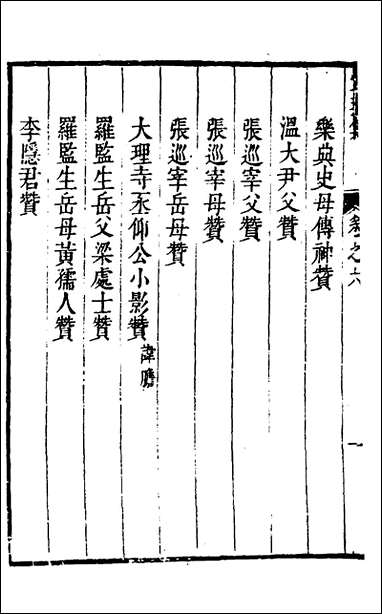 卷之六
樂典史母傳神贊
溫大尹父贊
張巡宰父贊
張巡宰母贊
張巡宰岳母贊
大理寺丞仰公小影贊 諱瞻
羅監生岳父梁處士贊
羅監生岳母黃孺人贊
李隱君贊